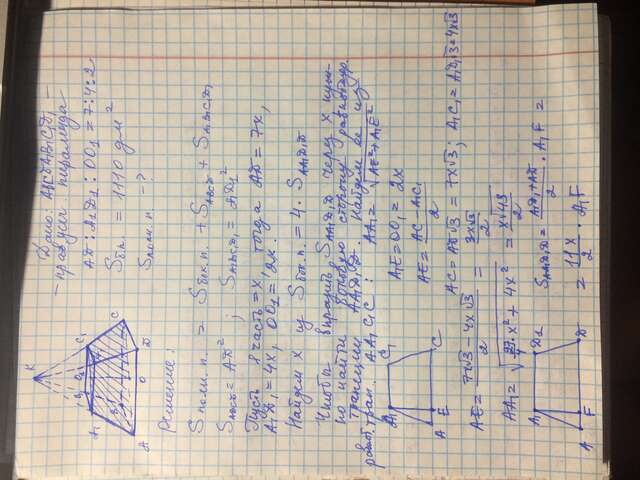 Дано: ABCDA₁B₁C₁D₁ –
– прав. усеч. пирамида
AD : A₁D₁ : OO₁ = 7:4:2
Sб.п. = 1110 дм²
Sполн. п. – ?
K
B₁ O₁
A₁ D₁ C₁
B C
A O D
Решение:
Sполн. п. = Sбок. п. + S_ABCD + S_A₁B₁C₁D₁
S_ABCD = AD² ; S_A₁B₁C₁D₁ = A₁D₁²
Пусть 1 часть = x, тогда AD = 7x,
A₁D₁ = 4x, OO₁ = 2x.
Найдем x из Sбок. п. = 4 · S_AA₁D₁D
Чтобы выразить S_AA₁D₁D через x нуж-
но найти боковую сторону равнобедр.
трапеции AA₁D₁D. Найдем ее из
равноб. трап. AA₁C₁C : AA₁ = √AE² + A₁E²
A₁ C₁
A E C
A₁E = OO₁ = 2x
AE = (AC – A₁C₁)/2
AC = AD√3 = 7x√3 ; A₁C₁ = A₁D₁√3 = 4x√3
AE = (7x√3 – 4x√3)/2 = 3x√3/2
AA₁ = √(27/4 · x² + 4x²) = x√43/2
A₁ D₁
A F D
S_AA₁D₁D = (A₁D₁ + AD)/2 · A₁F =
= 11x/2 · A₁F